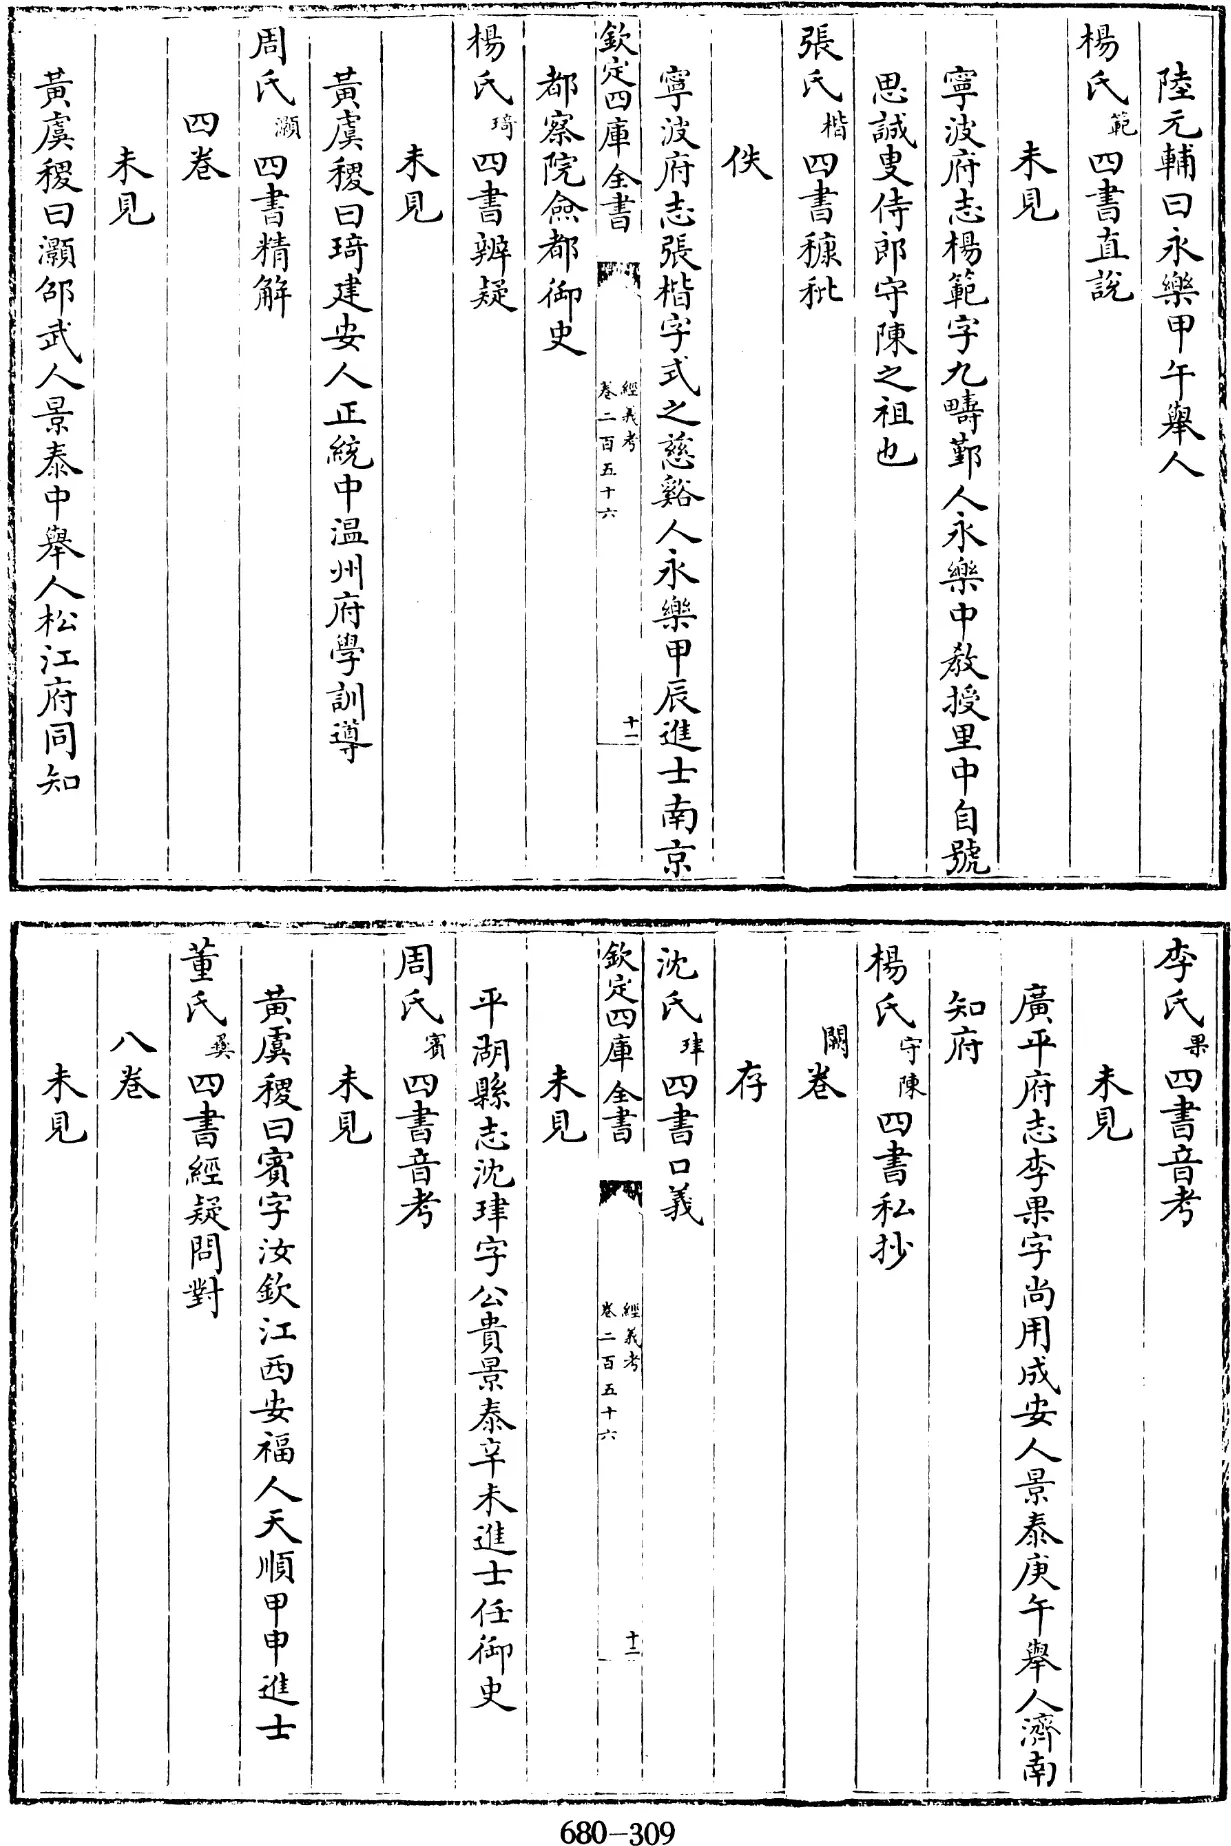 陸元輔曰永樂甲午舉人
楊氏範四書直説
未見
寧波府志楊範字九疇鄞人永樂中教授里中自號
思誠叟侍郎守陳之祖也
張氏楷四書糠秕
佚
寧波府志張楷字式之慈谿人永樂甲辰進士南京
欽定四庫全書 經義考 卷二百五十六 十一
都察院僉都御史
楊氏琦四書辨疑
未見
黃虞稷曰琦建安人正統中溫州府學訓導
周氏灝四書精解
四卷
未見
黃虞稷曰灝邵武人景泰中舉人松江府同知
李氏果四書音考
未見
廣平府志李果字尚用成安人景泰庚午舉人濟南
知府
楊氏守陳四書私抄
闕卷
存
沈氏珒四書口義
欽定四庫全書 經義考 卷二百五十六 十二
未見
平湖縣志沈珒字公貴景泰辛未進士任御史
周氏賓四書音考
未見
黃虞稷曰賓字汝欽江西安福人天順甲申進士
董氏彝四書經疑問對
八卷
未見
680-309